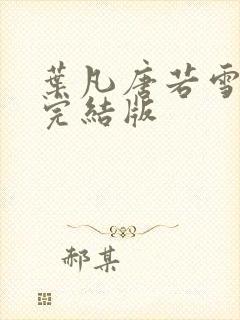 葉凡唐若雪
完結版
郝某